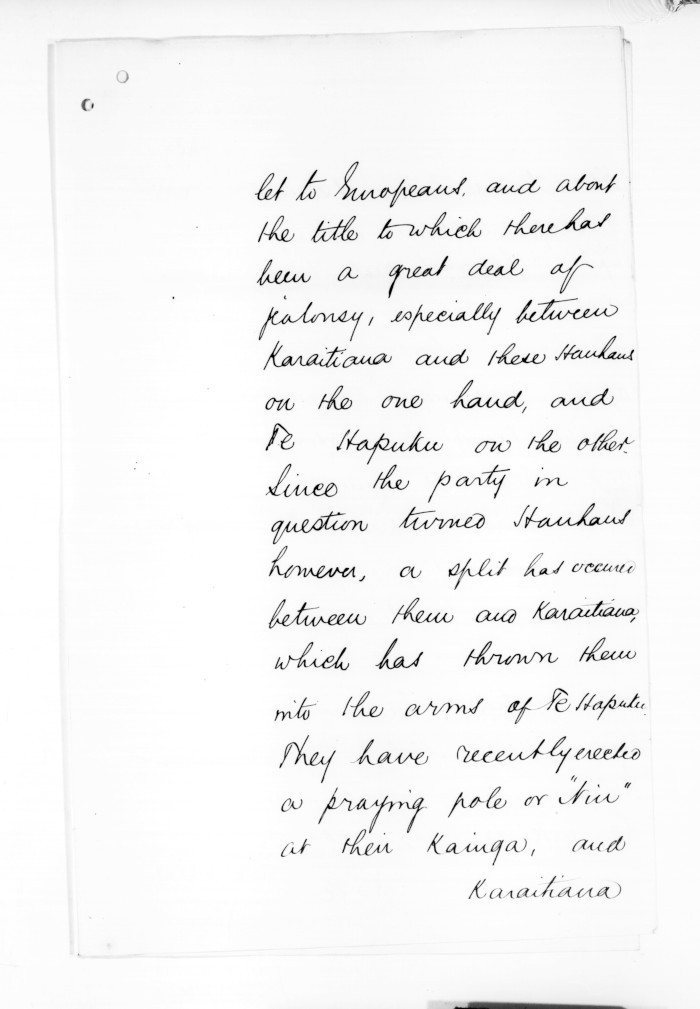 let to Europeans, and about
the title to which there has
been a great deal of
jealousy, especially between
Karaitiana and these Hauhaus
on the one hand, and
Te Hapuku on the other.
Since the party in
question turned Hauhaus
however, a split has occured
between them and Karaitiana,
which has thrown them
into the arms of Te Hapuku.
They have recently erected
a praying pole or "Niu"
at their Kainga, and
Karaitiana